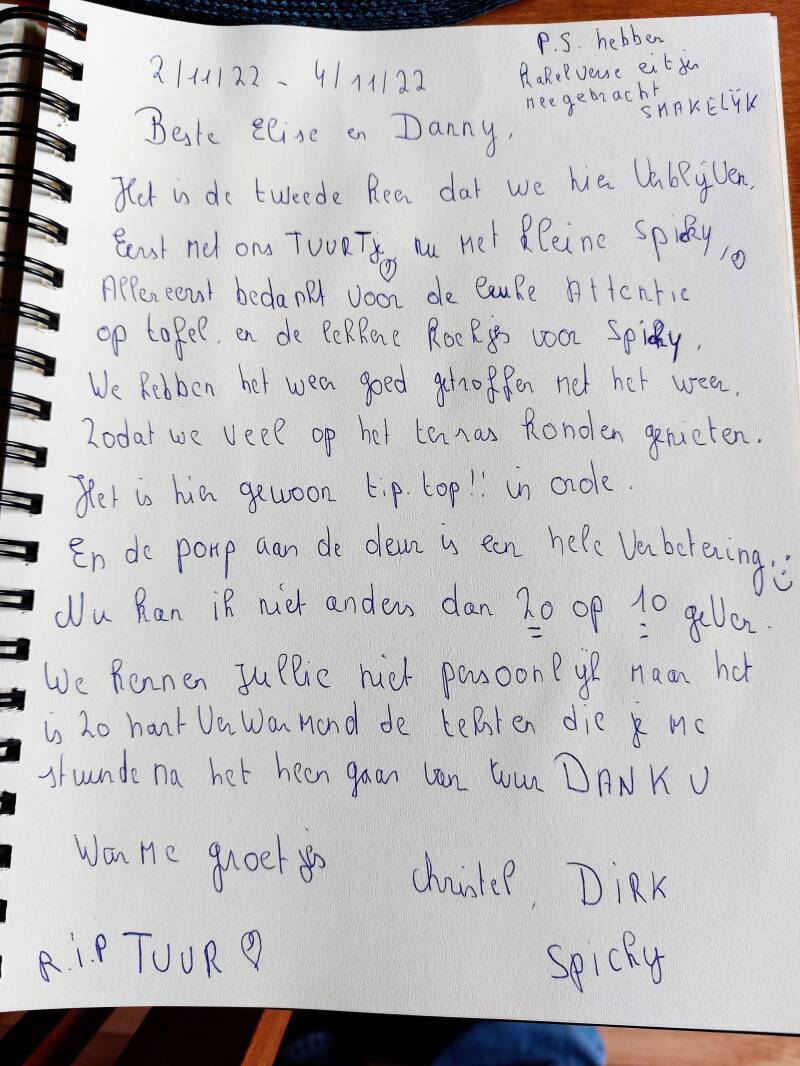 2/11/22 - 4/11/22
P.S. hebben
kakelverse eitjes
meegebracht
SMAKELIJK
Beste Elise en Danny,
Het is de tweede keer dat we hier verblijven.
Eerst met ons TUURTje ♡ nu met kleine Spicky, ♡
Allereerst bedankt voor de leuke Attentie
op tafel. en de lekkere koekjes voor Spicky.
We hebben het weer goed getroffen met het weer,
Zodat we veel op het terras konden genieten.
Het is hier gewoon tip. top!! in orde.
En de pomp aan de deur is een hele verbetering. :)
Nu kan ik niet anders dan 20 op 10 geven.
We kennen jullie niet persoonlijk maar het
is zo hartverwarmend de teksten die je me
stuurde na het heengaan van tuur DANK U
Warme groetjes
Christel, DIRK
Spicky
R.i.P TUUR ♡